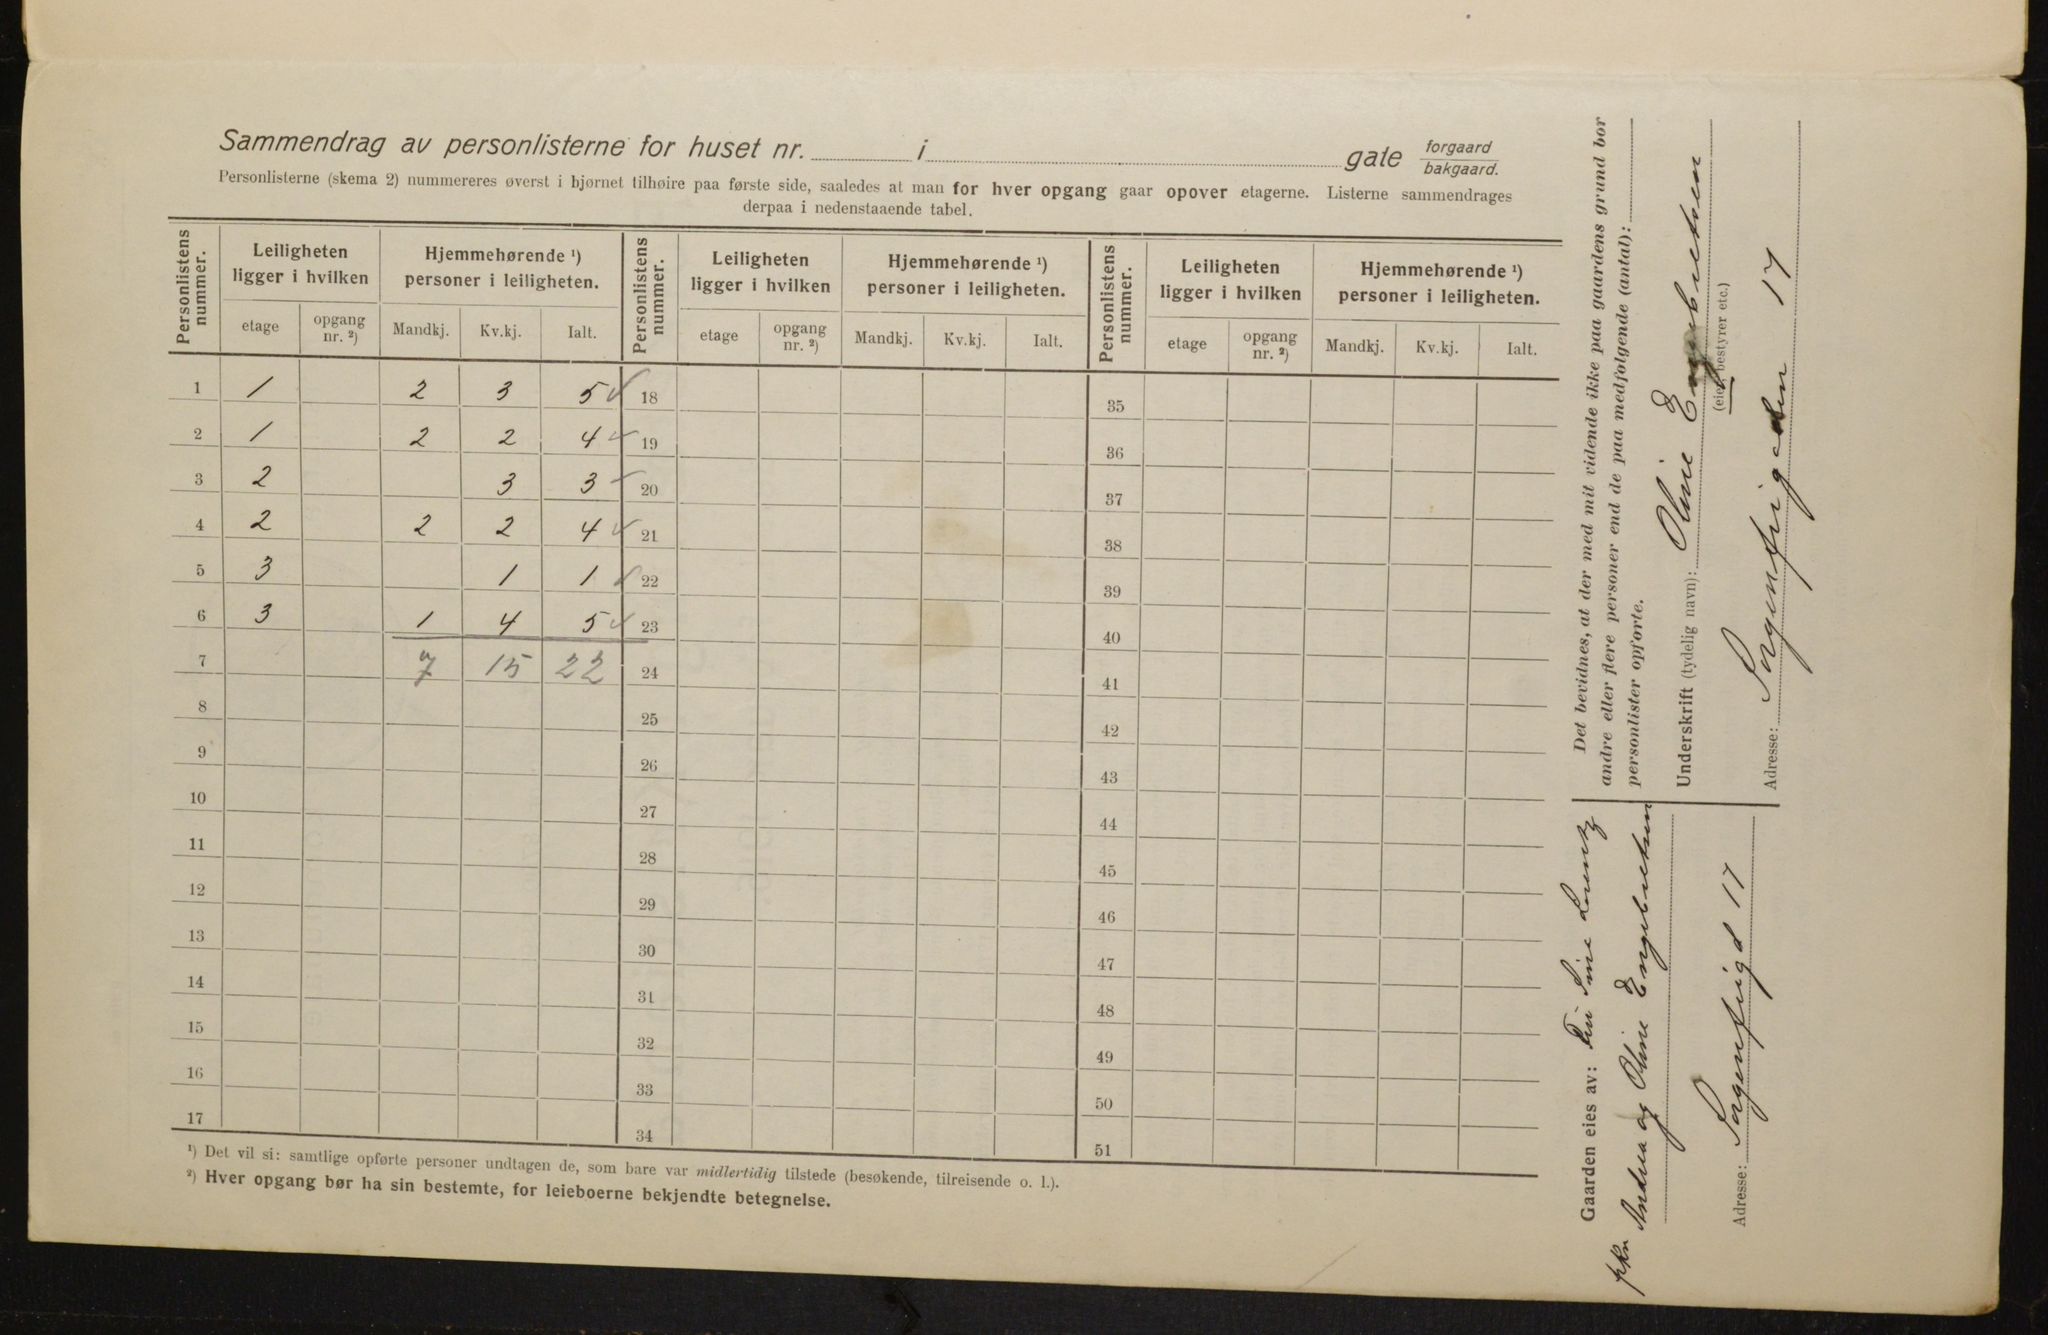 Sammendrag av personlisterne for huset nr. i gate forgaard bakgaard.
Personlisterne (skema 2) nummereres øverst i hjørnet tilhøire paa første side, saaledes at man for hver opgang gaar opover etagerne. Listerne sammendrages
derpaa i nedenstaaende tabel.
Personlistens nummer. Leiligheten ligger i hvilken Hjemmehørende ¹) personer i leiligheten. Personlistens nummer. Leiligheten ligger i hvilken Hjemmehørende ¹) personer i leiligheten. Personlistens nummer. Leiligheten ligger i hvilken Hjemmehørende ¹) personer i leiligheten.
etage opgang nr. ²) Mandkj. Kv.kj. Ialt. etage opgang nr. ²) Mandkj. Kv.kj. Ialt. etage opgang nr. ²) Mandkj. Kv.kj. Ialt.
1 1 2 3 5 ✓ 18 35
2 1 2 2 4 ✓ 19 36
3 2 3 3 ✓ 20 37
4 2 2 2 4 ✓ 21 38
5 3 1 1 ✓ 22 39
6 3 1 4 5 ✓ 23 40
7 7 15 22 24 41
8 25 42
9 26 43
10 27 44
11 28 45
12 29 46
13 30 47
14 31 48
15 32 49
16 33 50
17 34 51
¹) Det vil si: samtlige opførte personer undtagen de, som bare var midlertidig tilstede (besøkende, tilreisende o. l.).
²) Hver opgang bør ha sin bestemte, for leieboerne bekjendte betegnelse.
Det bevidnes, at der med mit vidende ikke paa gaardens grund bor
andre eller flere personer end de paa medfølgende (antal):
personlister opførte.
Underskrift (tydelig navn): Oline Engebretsen
(eier, bestyrer etc.)
Adresse: Sogensfrigaden 17
Gaarden eies av: Sine
Andrea og Oline Engebretsen
Adresse: Sogensfrigd 17